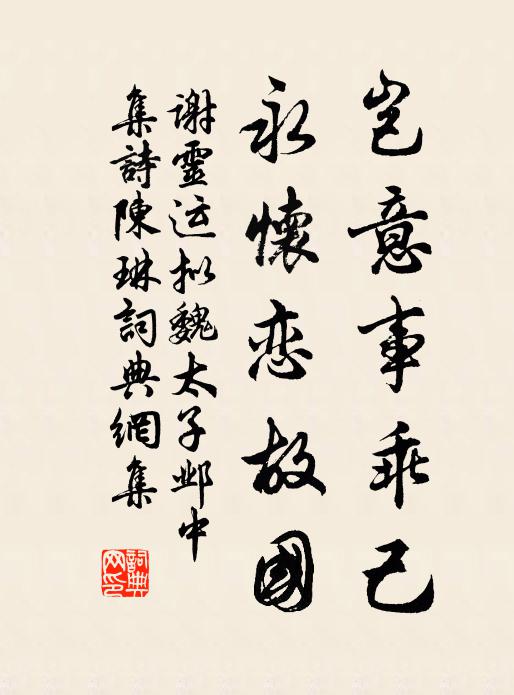 豈意事乖己
永懷恋故國
謝靈运拟魏太子邺中
集詩陳琳詞典網集
詞典網印